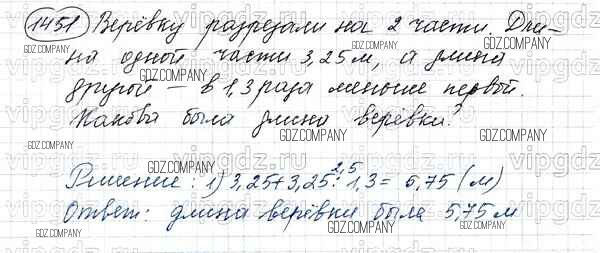 1451 Верёвку разрезали на 2 части. Дли-
на одной части 3,25 м, а длина
другой – в 1,3 раза меньше первой.
Какова была длина верёвки?
2,5
Решение: 1) 3,25+3,25:1,3= 5,75 (м)
Ответ: длина верёвки была 5,75 м
GDZ.COMPANY
vipgdz.ru